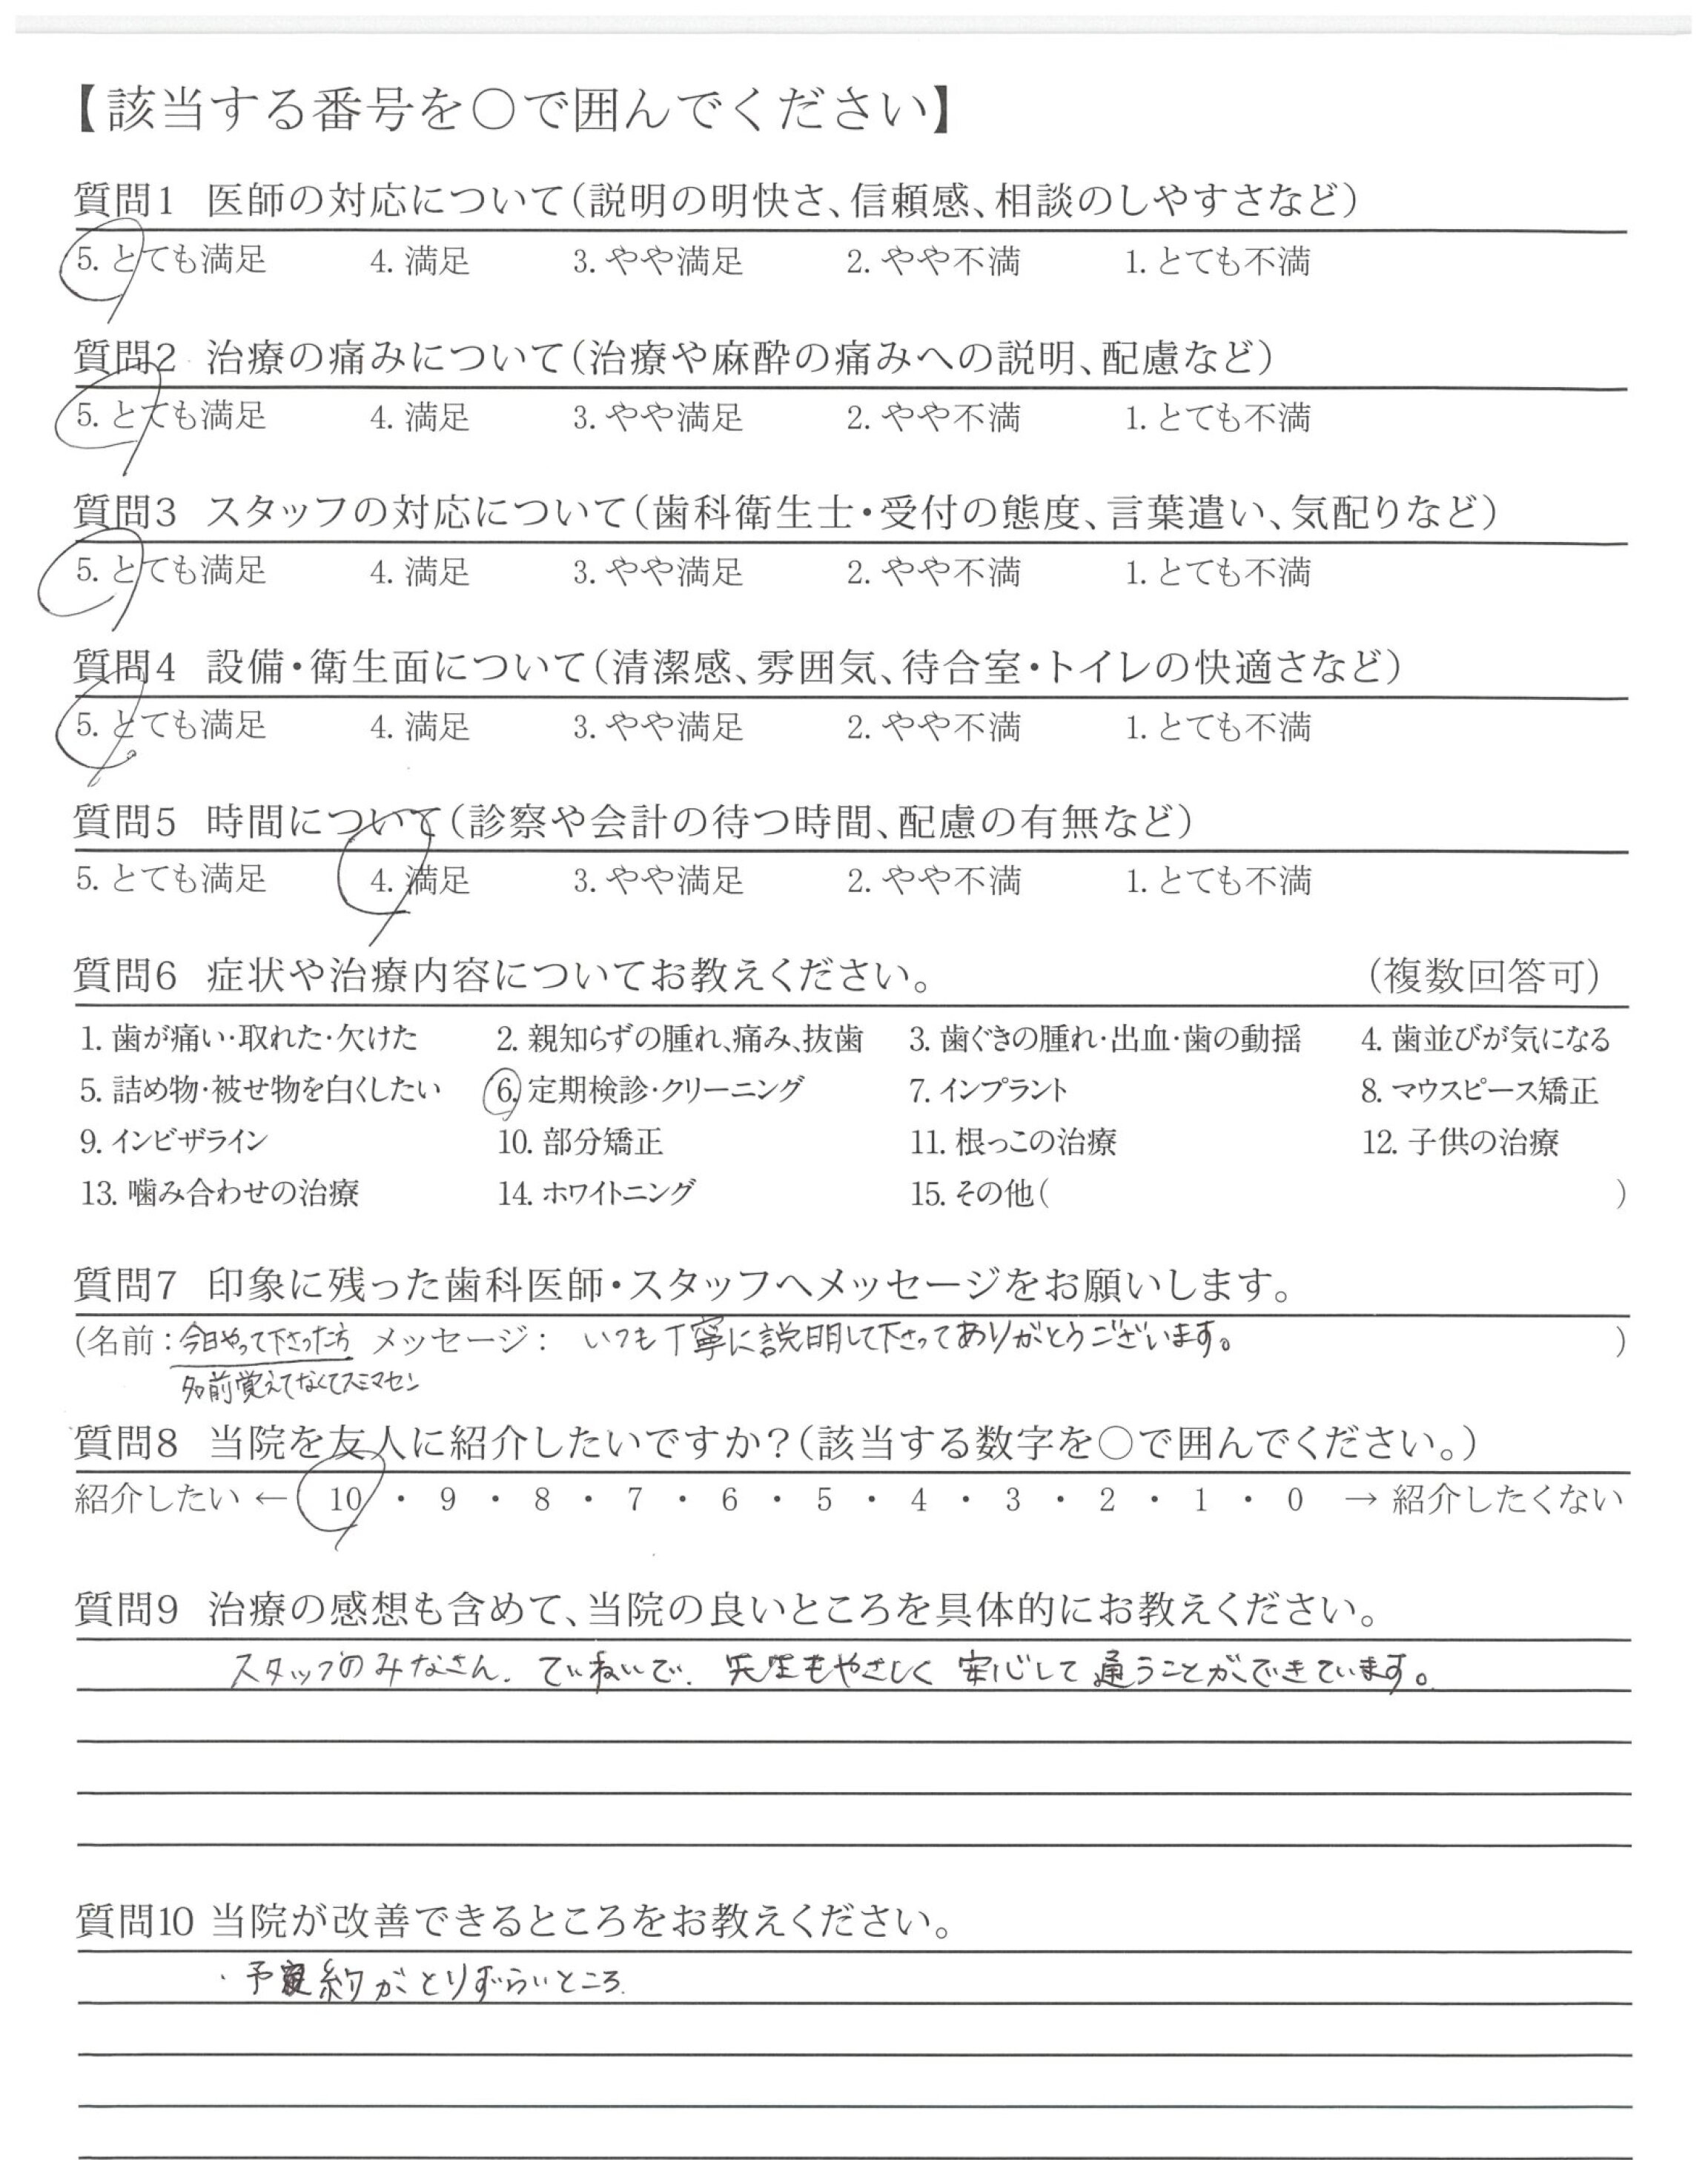 【該当する番号を○で囲んでください】
質問1 医師の対応について(説明の明快さ、信頼感、相談のしやすさなど)
5. とても満足 4. 満足 3. やや満足 2. やや不満 1. とても不満
質問2 治療の痛みについて(治療や麻酔の痛みへの説明、配慮など)
5. とても満足 4. 満足 3. やや満足 2. やや不満 1. とても不満
質問3 スタッフの対応について(歯科衛生士・受付の態度、言葉遣い、気配りなど)
5. とても満足 4. 満足 3. やや満足 2. やや不満 1. とても不満
質問4 設備・衛生面について(清潔感、雰囲気、待合室・トイレの快適さなど)
5. とても満足 4. 満足 3. やや満足 2. やや不満 1. とても不満
質問5 時間について(診察や会計の待つ時間、配慮の有無など)
5. とても満足 4. 満足 3. やや満足 2. やや不満 1. とても不満
質問6 症状や治療内容についてお教えください。 (複数回答可)
1. 歯が痛い・取れた・欠けた 2. 親知らずの腫れ、痛み、抜歯 3. 歯ぐきの腫れ・出血・歯の動揺 4. 歯並びが気になる
5. 詰め物・被せ物を白くしたい 6. 定期検診・クリーニング 7. インプラント 8. マウスピース矯正
9. インビザライン 10. 部分矯正 11. 根っこの治療 12. 子供の治療
13. 噛み合わせの治療 14. ホワイトニング 15. その他( )
質問7 印象に残った歯科医師・スタッフへメッセージをお願いします。
(名前:今日やって下さった方 メッセージ: いつも丁寧に説明して下さってありがとうございます。 )
名前覚えてなくてスミマセン
質問8 当院を友人に紹介したいですか?(該当する数字を○で囲んでください。)
紹介したい ← 10 ・ 9 ・ 8 ・ 7 ・ 6 ・ 5 ・ 4 ・ 3 ・ 2 ・ 1 ・ 0 → 紹介したくない
質問9 治療の感想も含めて、当院の良いところを具体的にお教えください。
スタッフのみなさん、ていねいで、先生もやさしく 安心して通うことができています。
質問10 当院が改善できるところをお教えください。
・予約がとりずらいところ.